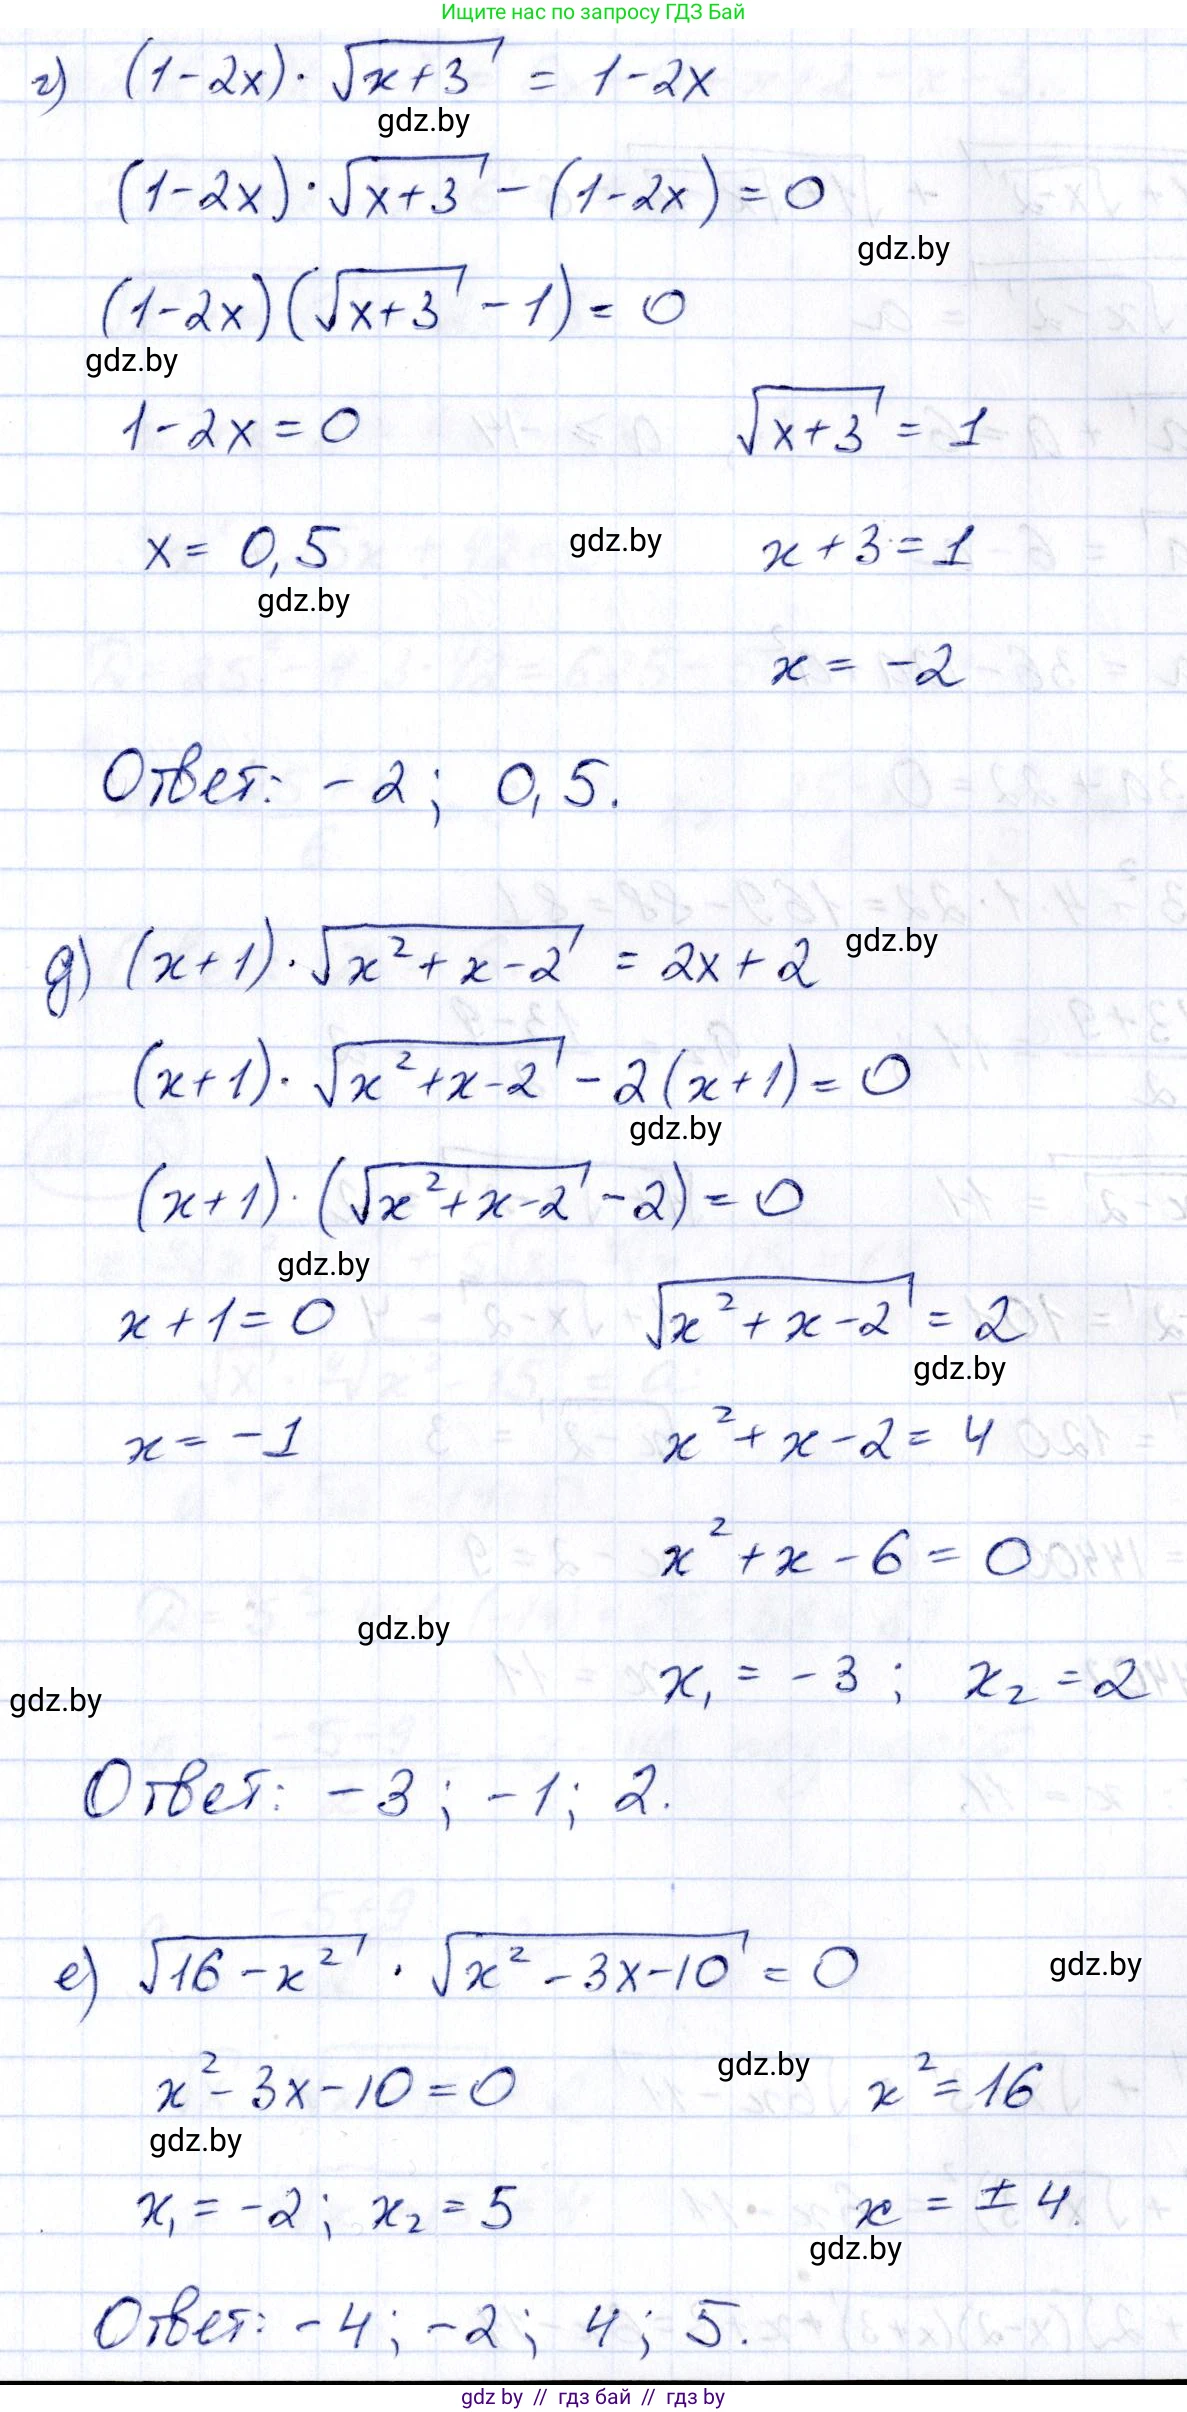 Ищите нас по запросу ГДЗ Бай
г) (1-2x)·√(x+3) = 1-2x
gdz.by
(1-2x)·√(x+3) - (1-2x) = 0
gdz.by
(1-2x)(√(x+3) - 1) = 0
gdz.by
1-2x = 0 √(x+3) = 1
x = 0,5 gdz.by x+3 = 1
gdz.by
x = -2
Ответ: -2; 0,5.
д) (x+1)·√(x²+x-2) = 2x+2 gdz.by
(x+1)·√(x²+x-2) - 2(x+1) = 0
gdz.by
(x+1)·(√(x²+x-2) - 2) = 0
gdz.by
x+1 = 0 √(x²+x-2) = 2
gdz.by
x = -1 x²+x-2 = 4
x²+x-6 = 0
gdz.by
gdz.by x₁ = -3; x₂ = 2
Ответ: -3; -1; 2.
е) √(16-x²) · √(x²-3x-10) = 0 gdz.by
gdz.by
x²-3x-10 = 0 x² = 16
gdz.by
x₁ = -2; x₂ = 5 x = ±4.
gdz.by
Ответ: -4; -2; 4; 5.
gdz by // гдз бай // гдз by